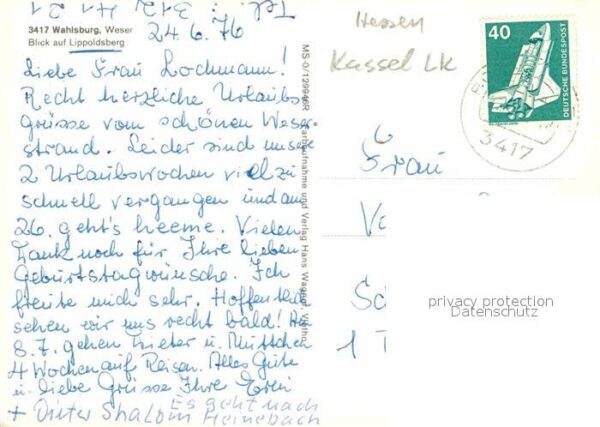 Tel.: 312 H1 21
3417 Wahlsburg, Weser
Blick auf Lippoldsberg
24.6.76
Liebe Frau Lochmann!
Recht herzliche Urlaubs-
grüsse vom schönen Weser-
strand. Leider sind unsere
2 Urlaubswochen viel zu
schnell vergangen und am
26. geht's heeme. Vielen
Dank noch für Ihre lieben
Geburtstagwünsche. Ich
freute mich sehr. Hoffentlich
sehen wir uns recht bald! Am
8.7. gehen Dieter u. Muttchen
4 Wochen auf Reisen. Alles Gute
u. liebe Grüsse Ihre
+ Dieter Shalom
Es geht nach
Heinebach
MS-0/12994
Farbaufnahme und Verlag Hans Wagner, Vlotho
Hessen
Kassel LK
40
DEUTSCHE BUNDESPOST
3417
6
Frau
1
privacy protection
Datenschutz